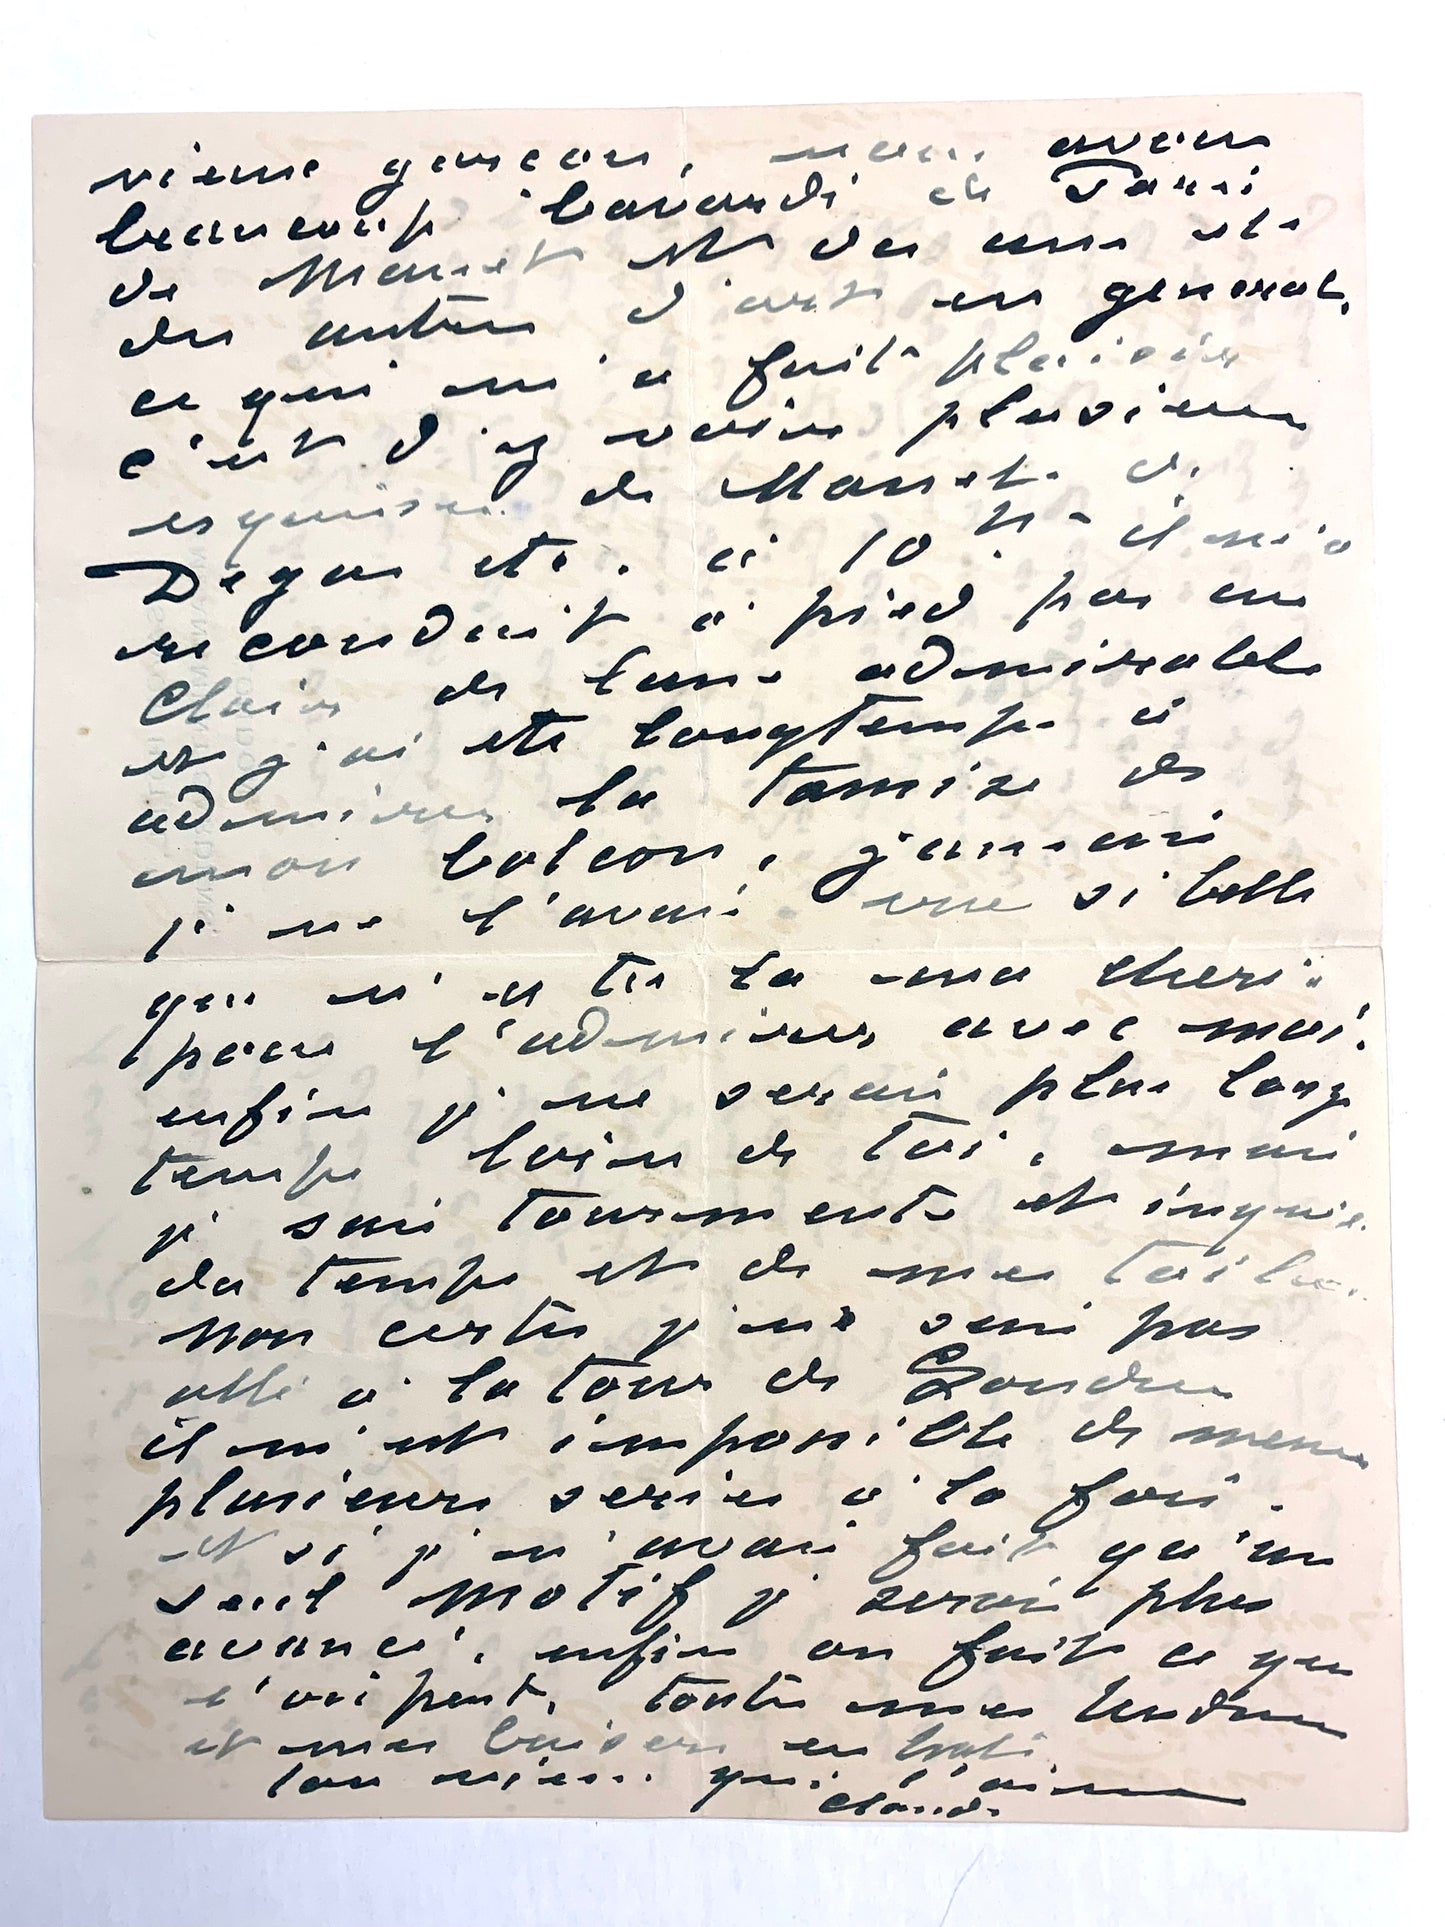 vieux garçon, nous avons
beaucoup bavardé de Paris
de Manet et de
des autres d'art en general,
ce qui m'a fait plaisir
c'est d'y voir plusieurs
esquisses de Manet. de
Degas etc. à 10 h - il m'a
reconduit à pied par un
Clair de lune admirable
et j'ai été longtemps à
admirer la tamise de
mon balcon, jamais
je ne l'avais vue si belle
que n'es tu la ma cherie
pour l'admirer avec moi.
enfin je ne serai plus long
temps loin de toi, mais
je suis tourmenté et inquiet
du temps et de mes toiles.
Non certes je ne suis pas
allé à la tour de Londres
il m'est impossible de mener
plusieurs series à la fois.
et si je n'avais fait qu'un
seul motif je serais plus
avancé, enfin on fait ce que
l'on peut. toutes mes tendresses
et mes baisers en hate
ton vieux qui t'aime
Claude